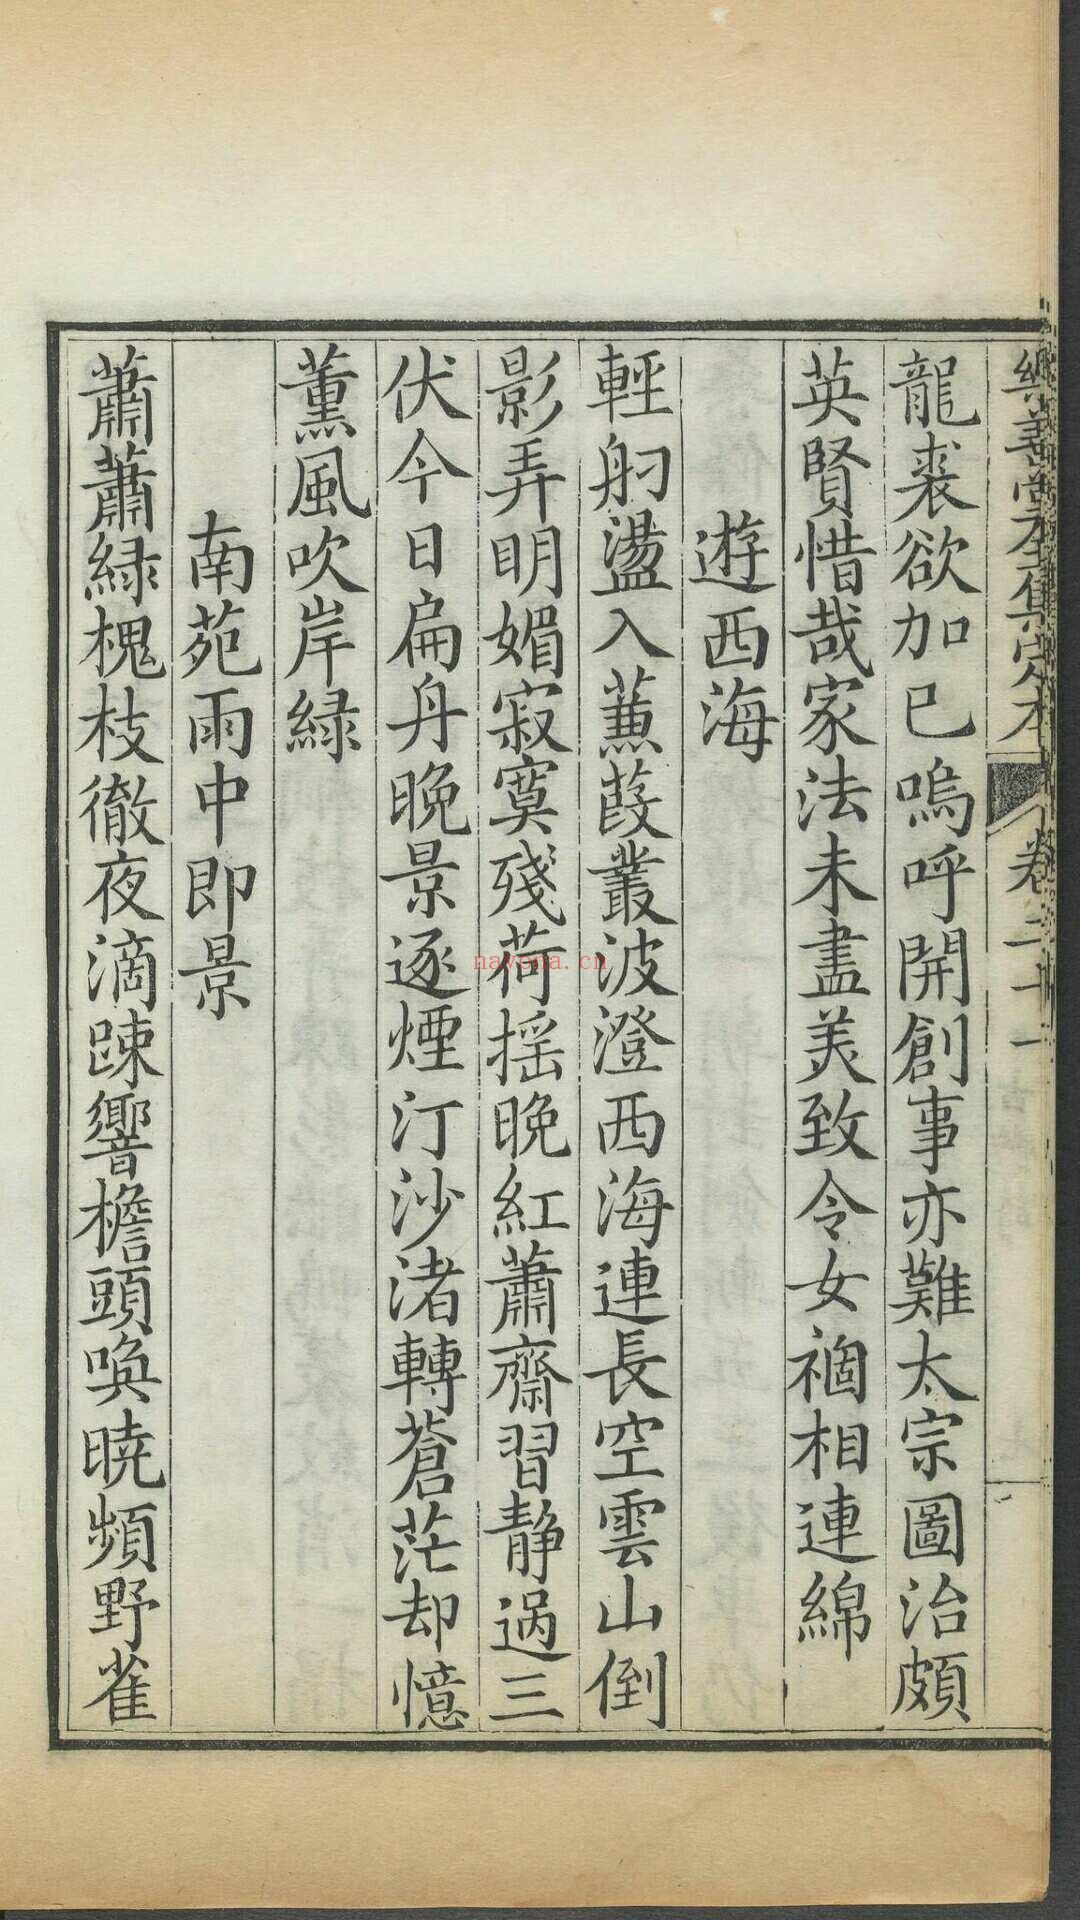 樂善堂全集定本
卷二十一
龍裘欲加已嗚呼開創事亦難太宗圖治頗
英賢惜哉家法未盡美致令女禍相連綿
遊西海
輕舠盪入蒹葭叢波澄西海連長空雲山倒
影弄明媚寂寞殘荷搖晚紅蕭齋習靜過三
伏今日扁舟晚景逐煙汀沙渚轉蒼茫却憶
薰風吹岸緑
南苑雨中即景
蕭蕭緑槐枝徹夜滴疎響檐頭喚曉頻野雀
nayona.cn